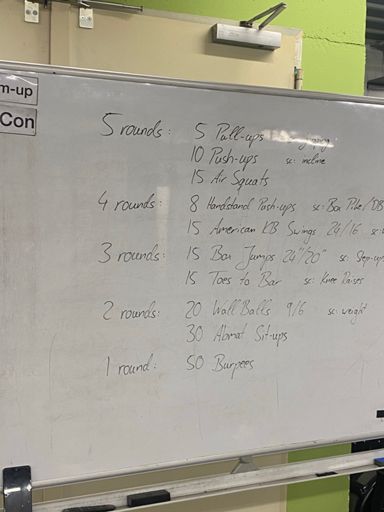 m-up
Con
5 rounds: 5 Pull-ups
10 Push-ups sc: incline
15 Air Squats
4 rounds: 8 Handstand Push-ups sc: Box Pike/DB
15 American KB Swings 24/16 sc:
3 rounds: 15 Box Jumps 24"/20" sc: Step-up
15 Toes to Bar sc: Knee Raises
2 rounds: 20 Wall Balls 9/6 sc: weight
30 Abmat Sit-ups
1 round: 50 Burpees